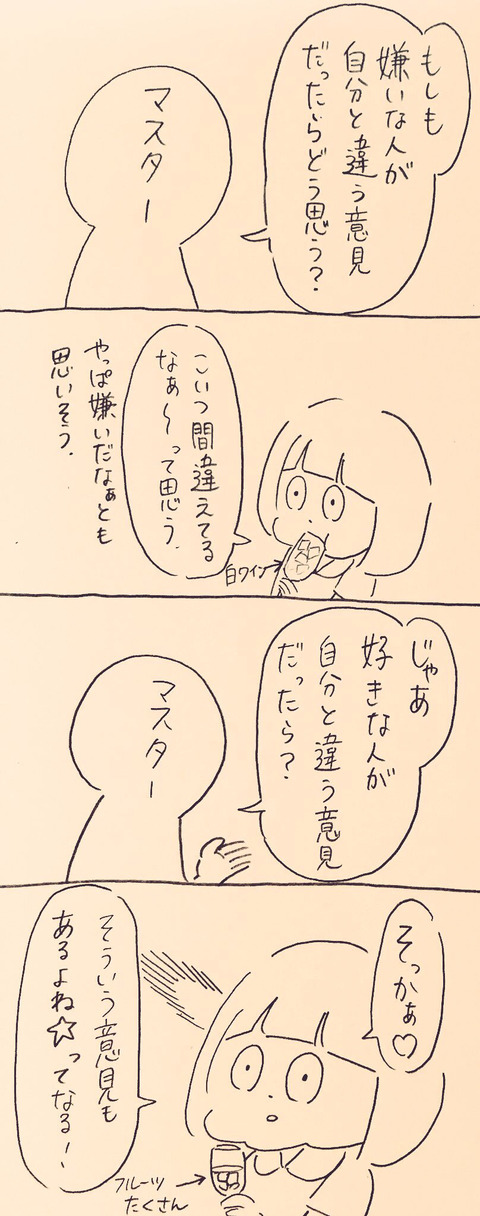 もしも
嫌いな人が
自分と違う意見
だったらどう思う?
マスター
こいつ間違えてる
なぁ〜って思う.
やっぱ嫌いだなぁとも
思いそう.
白ワイン→
じゃあ
好きな人が
自分と違う意見
だったら?
マスター
そっかぁ♡
そういう意見も
あるよね☆ってなる!
フルーツ→
たくさん